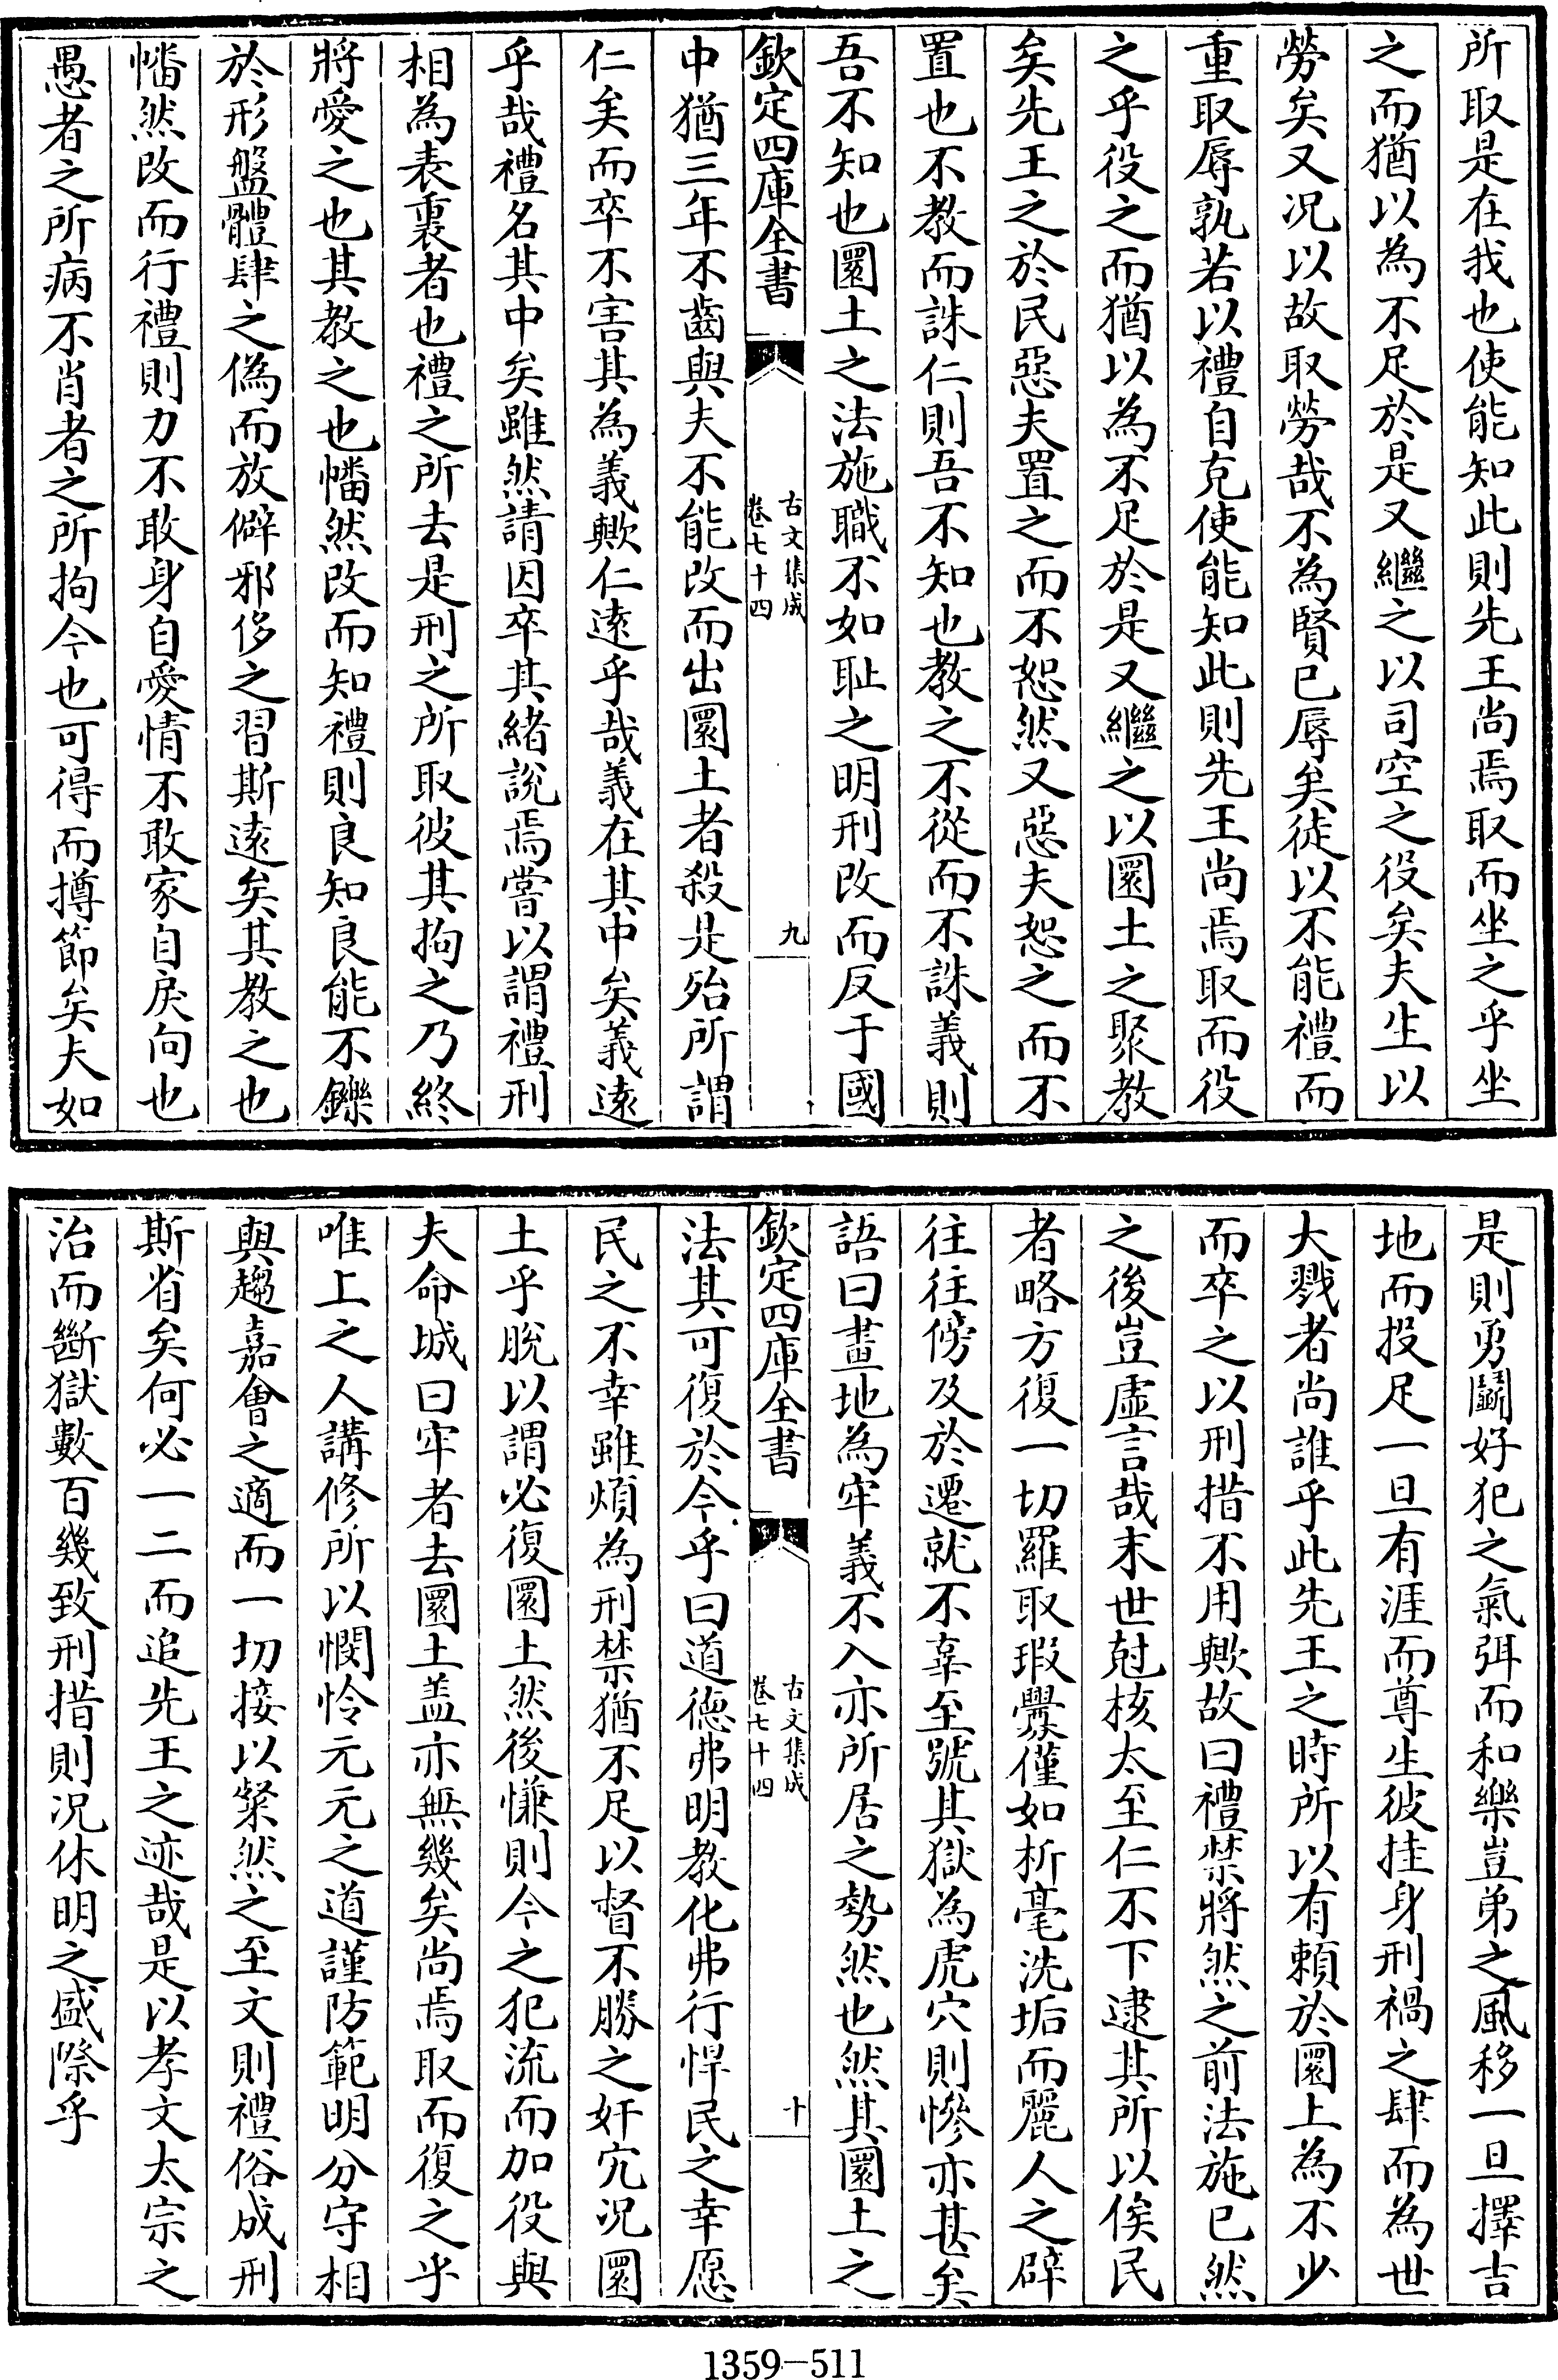 所取是在我也使能知此則先王尚焉取而坐之乎坐
之而猶以為不足於是又繼之以司空之役矣夫生以
勞矣又况以故取勞哉不為賢已辱矣徒以不能禮而
重取辱孰若以禮自克使能知此則先王尚焉取而役
之乎役之而猶以為不足於是又繼之以圜土之聚教
矣先王之於民惡夫置之而不恕然又惡夫恕之而不
置也不教而誅仁則吾不知也教之不從而不誅義則
吾不知也圜土之法施職不如耻之明刑改而反于國
欽定四庫全書
古文集成
卷七十四
九
中猶三年不齒與夫不能改而出圜土者殺是殆所謂
仁矣而卒不害其為義歟仁遠乎哉義在其中矣義遠
乎哉禮名其中矣雖然請因卒其緒說焉嘗以謂禮刑
相為表裏者也禮之所去是刑之所取彼其拘之乃終
將愛之也其教之也幡然改而知禮則良知良能不鑠
於形盤體肆之偽而放僻邪侈之習斯遠矣其教之也
幡然改而行禮則力不敢身自愛情不敢家自戾向也
愚者之所病不肖者之所拘今也可得而撙節矣夫如
是則勇鬭好犯之氣弭而和樂豈弟之風移一旦擇吉
地而投足一旦有涯而尊生彼挂身刑禍之肆而為世
大戮者尚誰乎此先王之時所以有賴於圜土為不少
而卒之以刑措不用歟故曰禮禁將然之前法施已然
之後豈虛言哉末世尅核太至仁不下逮其所以俟民
者略方復一切羅取瑕釁僅如析毫洗垢而麗人之辟
往往傍及於遷就不辜至號其獄為虎穴則慘亦甚矣
語曰畫地為牢義不入亦所居之勢然也然其圜土之
欽定四庫全書
古文集成
卷七十四
十
法其可復於今乎曰道德弗明教化弗行悍民之幸愿
民之不幸雖煩為刑禁猶不足以督不勝之奸宄况圜
土乎脫以謂必復圜土然後慊則今之犯流而加役與
夫命城曰牢者去圜土盖亦無幾矣尚焉取而復之乎
唯上之人講修所以憫怜元元之道謹防範明分守相
與趨嘉會之適而一切接以粲然之至文則禮俗成刑
斯省矣何必一二而追先王之迹哉是以孝文太宗之
治而斷獄數百幾致刑措則况休明之盛際乎
1359-511